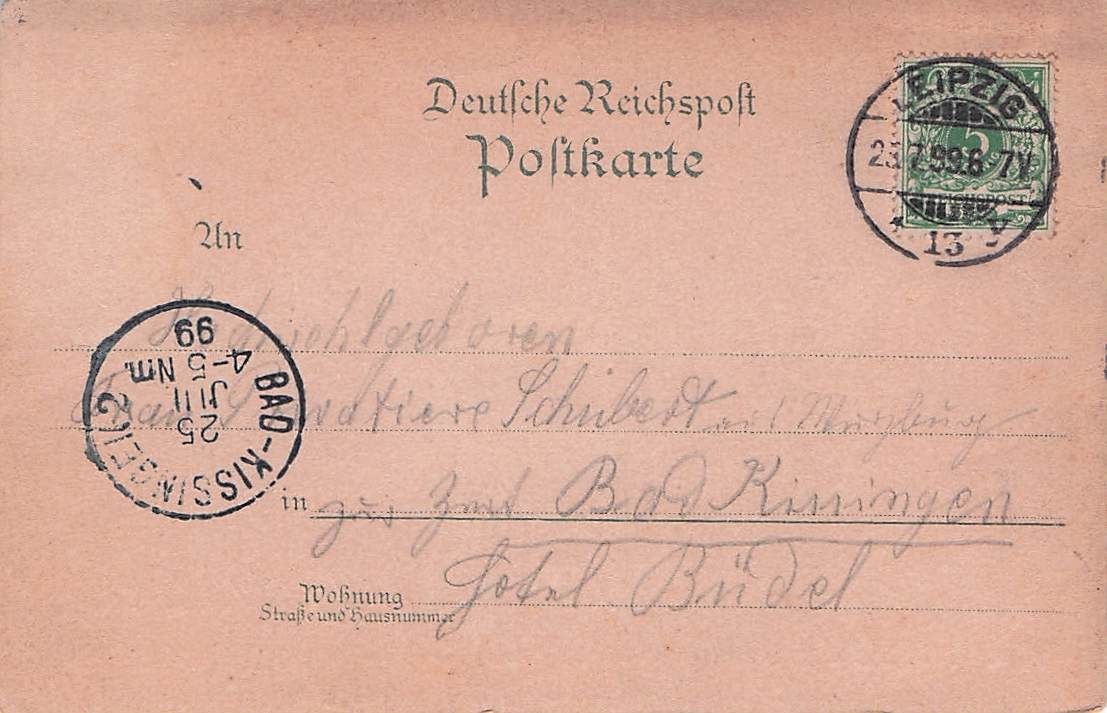 Deutsche Reichspost
Postkarte
LEIPZIG
7.99.6-7V
13
5
REICHSPOST
An
Hochwohlgeboren
Frau Schubert aus Würzburg
in zur Zeit Bad Kissingen
Wohnung Hotel Büdel
Straße und Hausnummer
BAD-KISSINGEN 2
25
JUL
4-5 Nm.
99